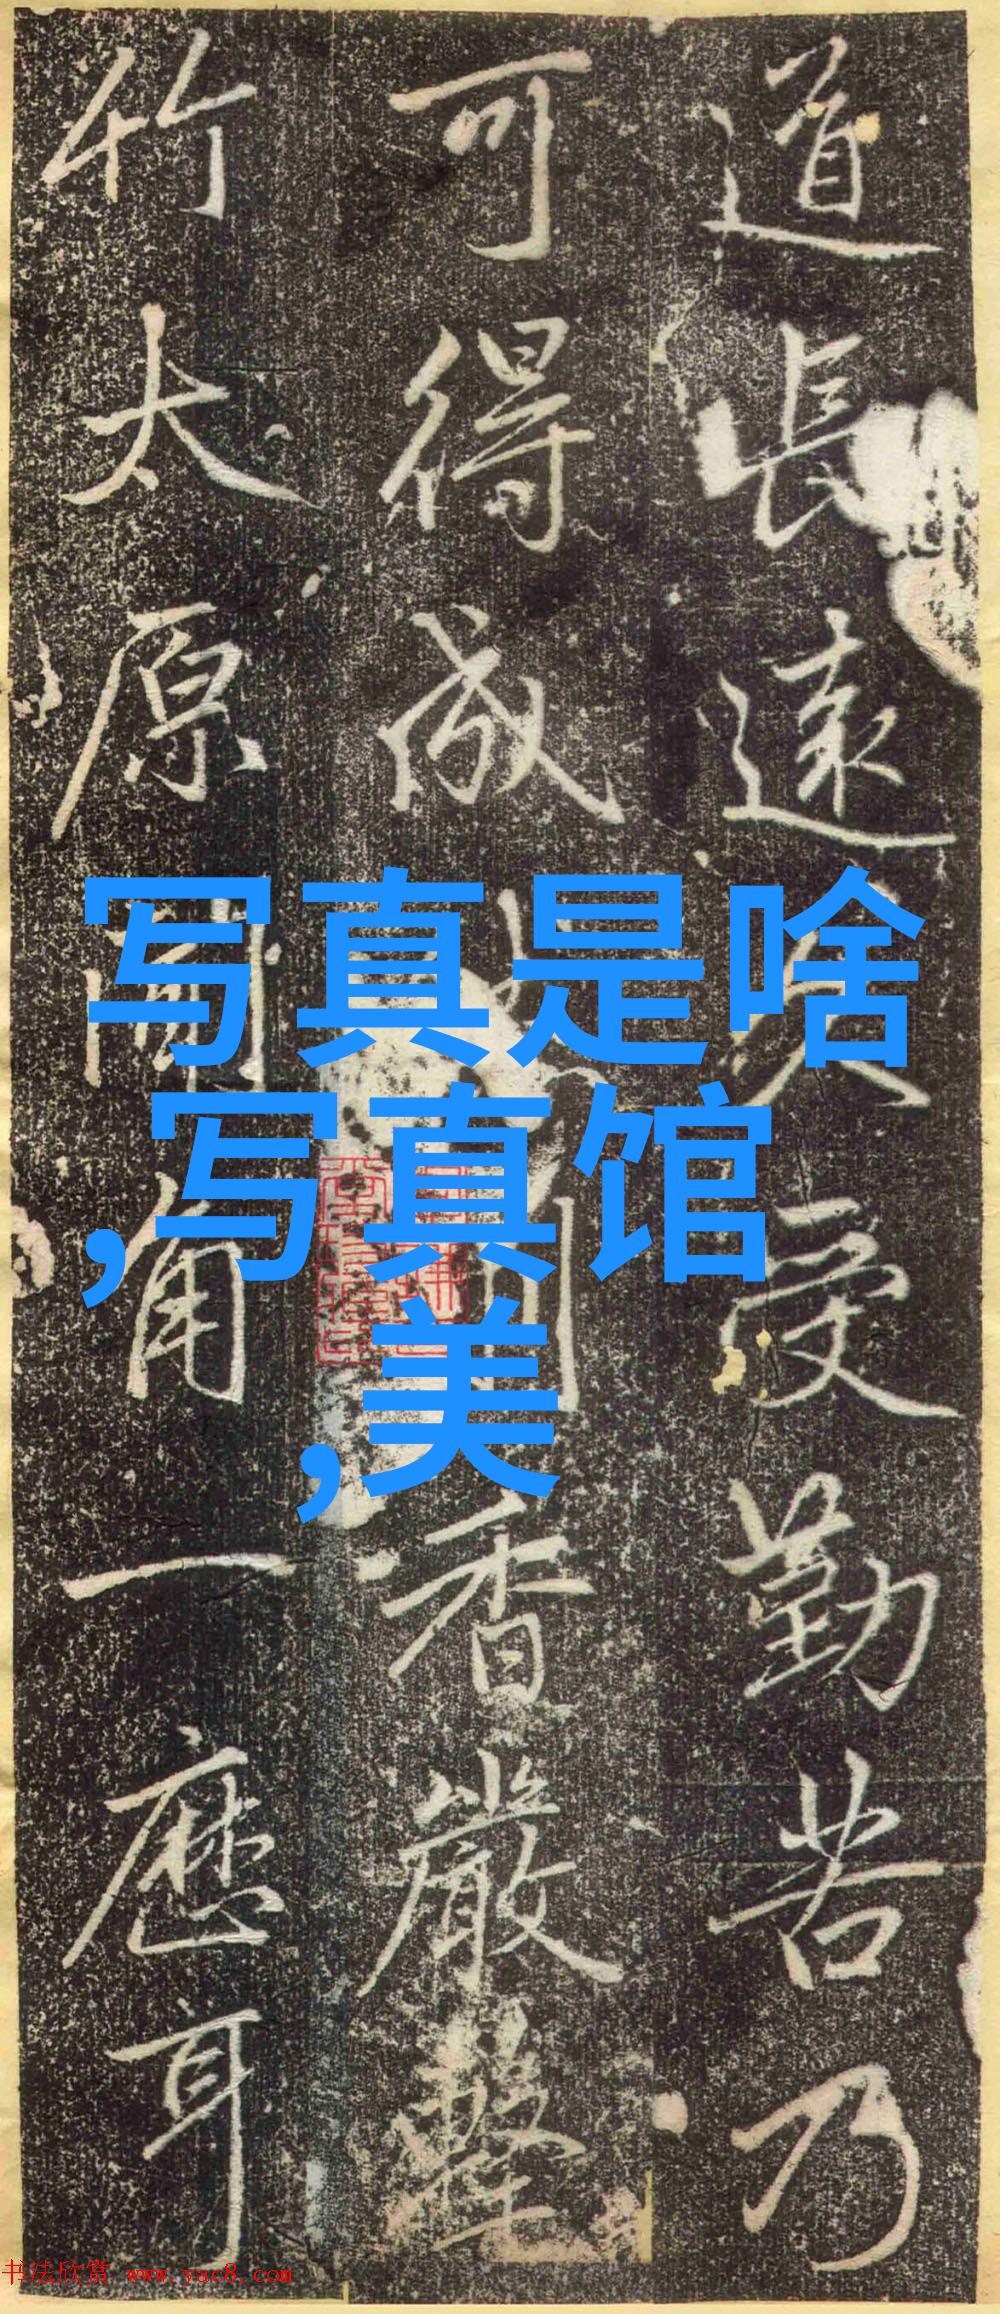 道長遠久受勤苦乃
可得成香嚴擊
竹太原聞角一應耳
写真是啥
,写真馆
,美
书法欣赏 www.yac8.com